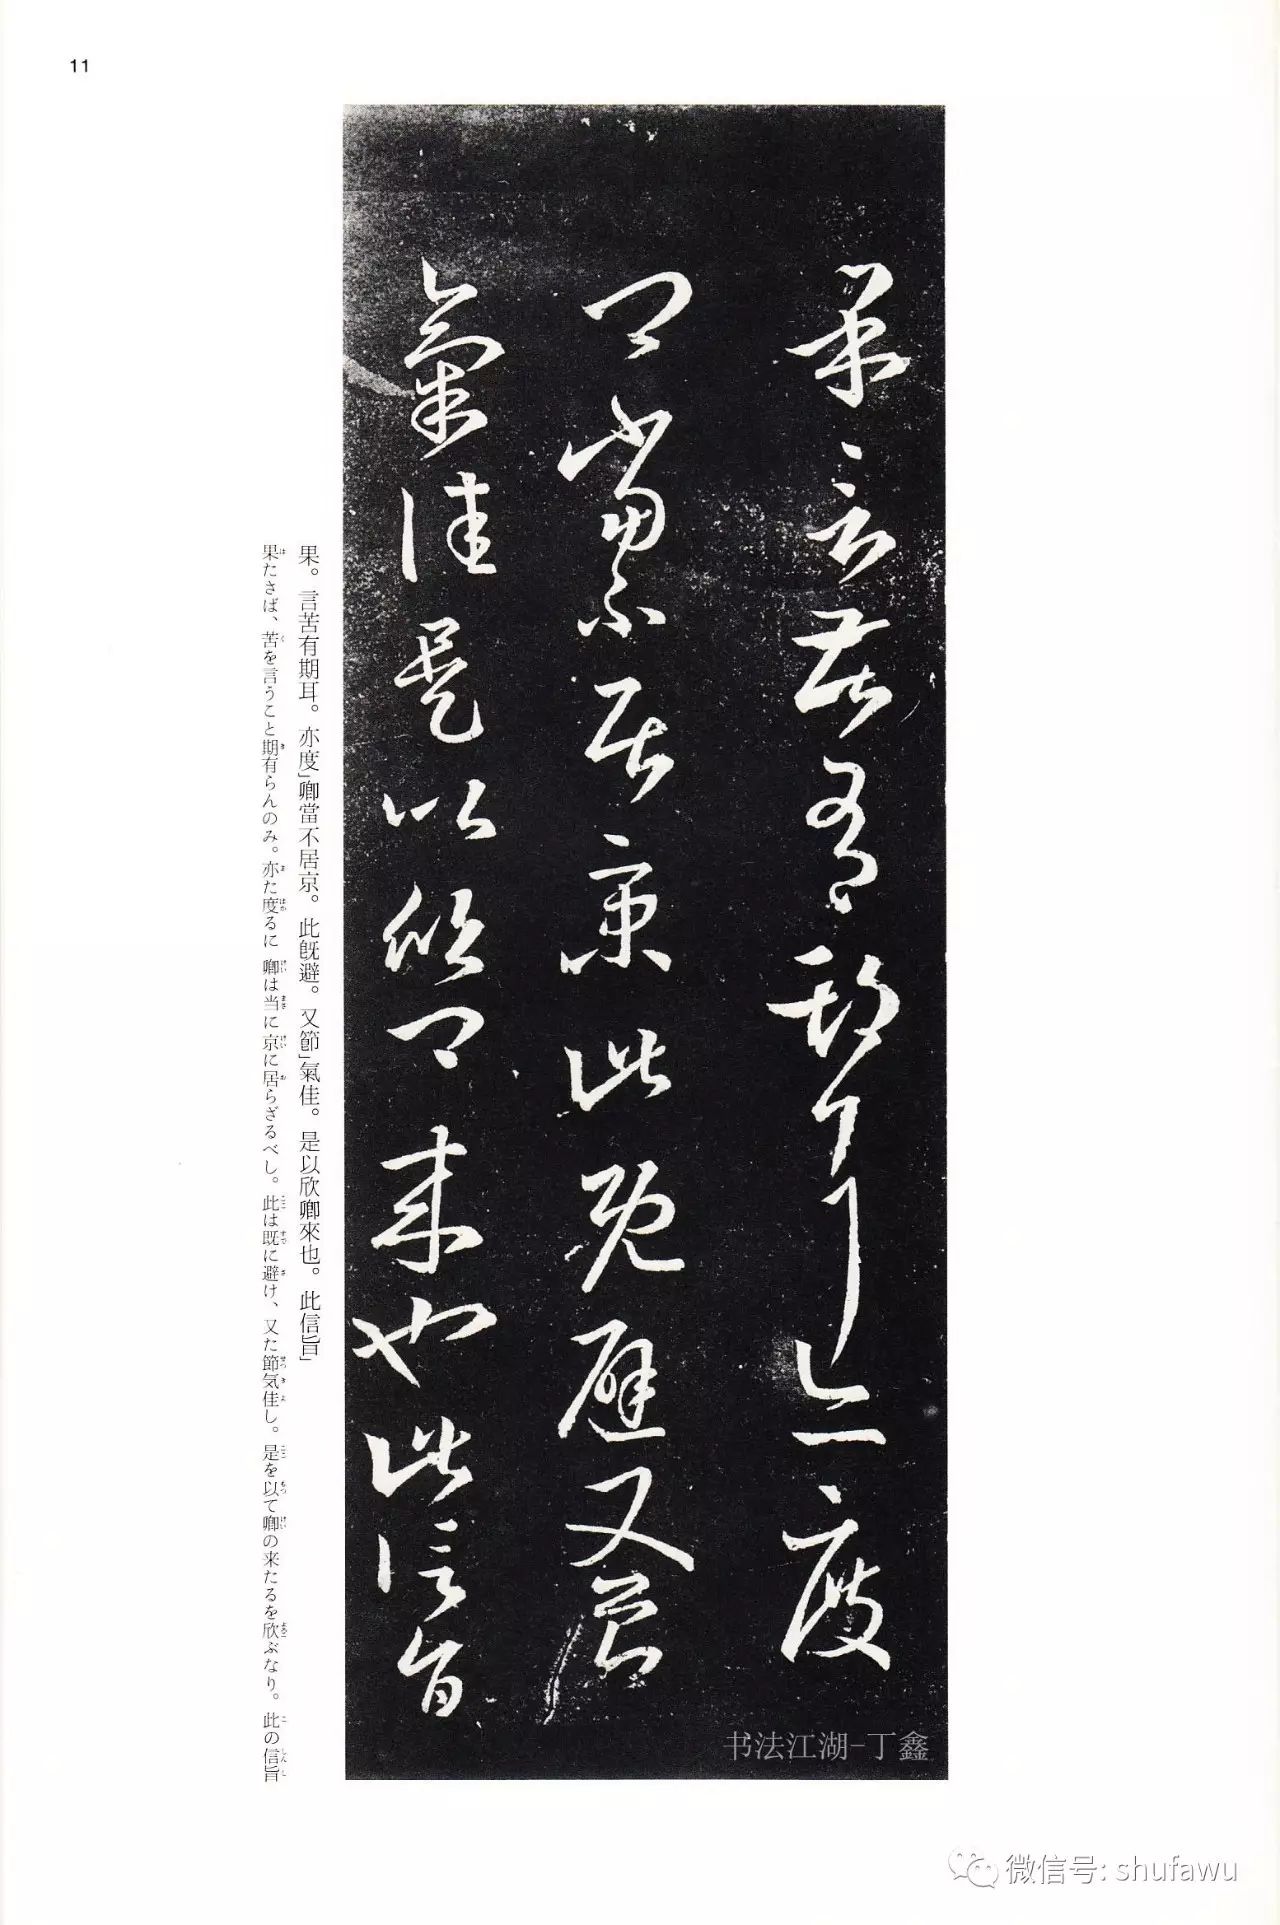 11
果言苦有期耳亦度
卿當不居京此既避又節
氣佳是以欣卿來也此信旨
果。言苦有期耳。亦度」卿當不居京。此旣避。又節」氣佳。是以欣卿來也。此信旨」
果たさば、苦を言うこと期有らんのみ。亦た度るに卿は当に京に居らざるべし。此は既に避け、又た節気佳し。是を以て卿の来たるを欣ぶなり。此の信旨
书法江湖-丁鑫
微信号: shufawu